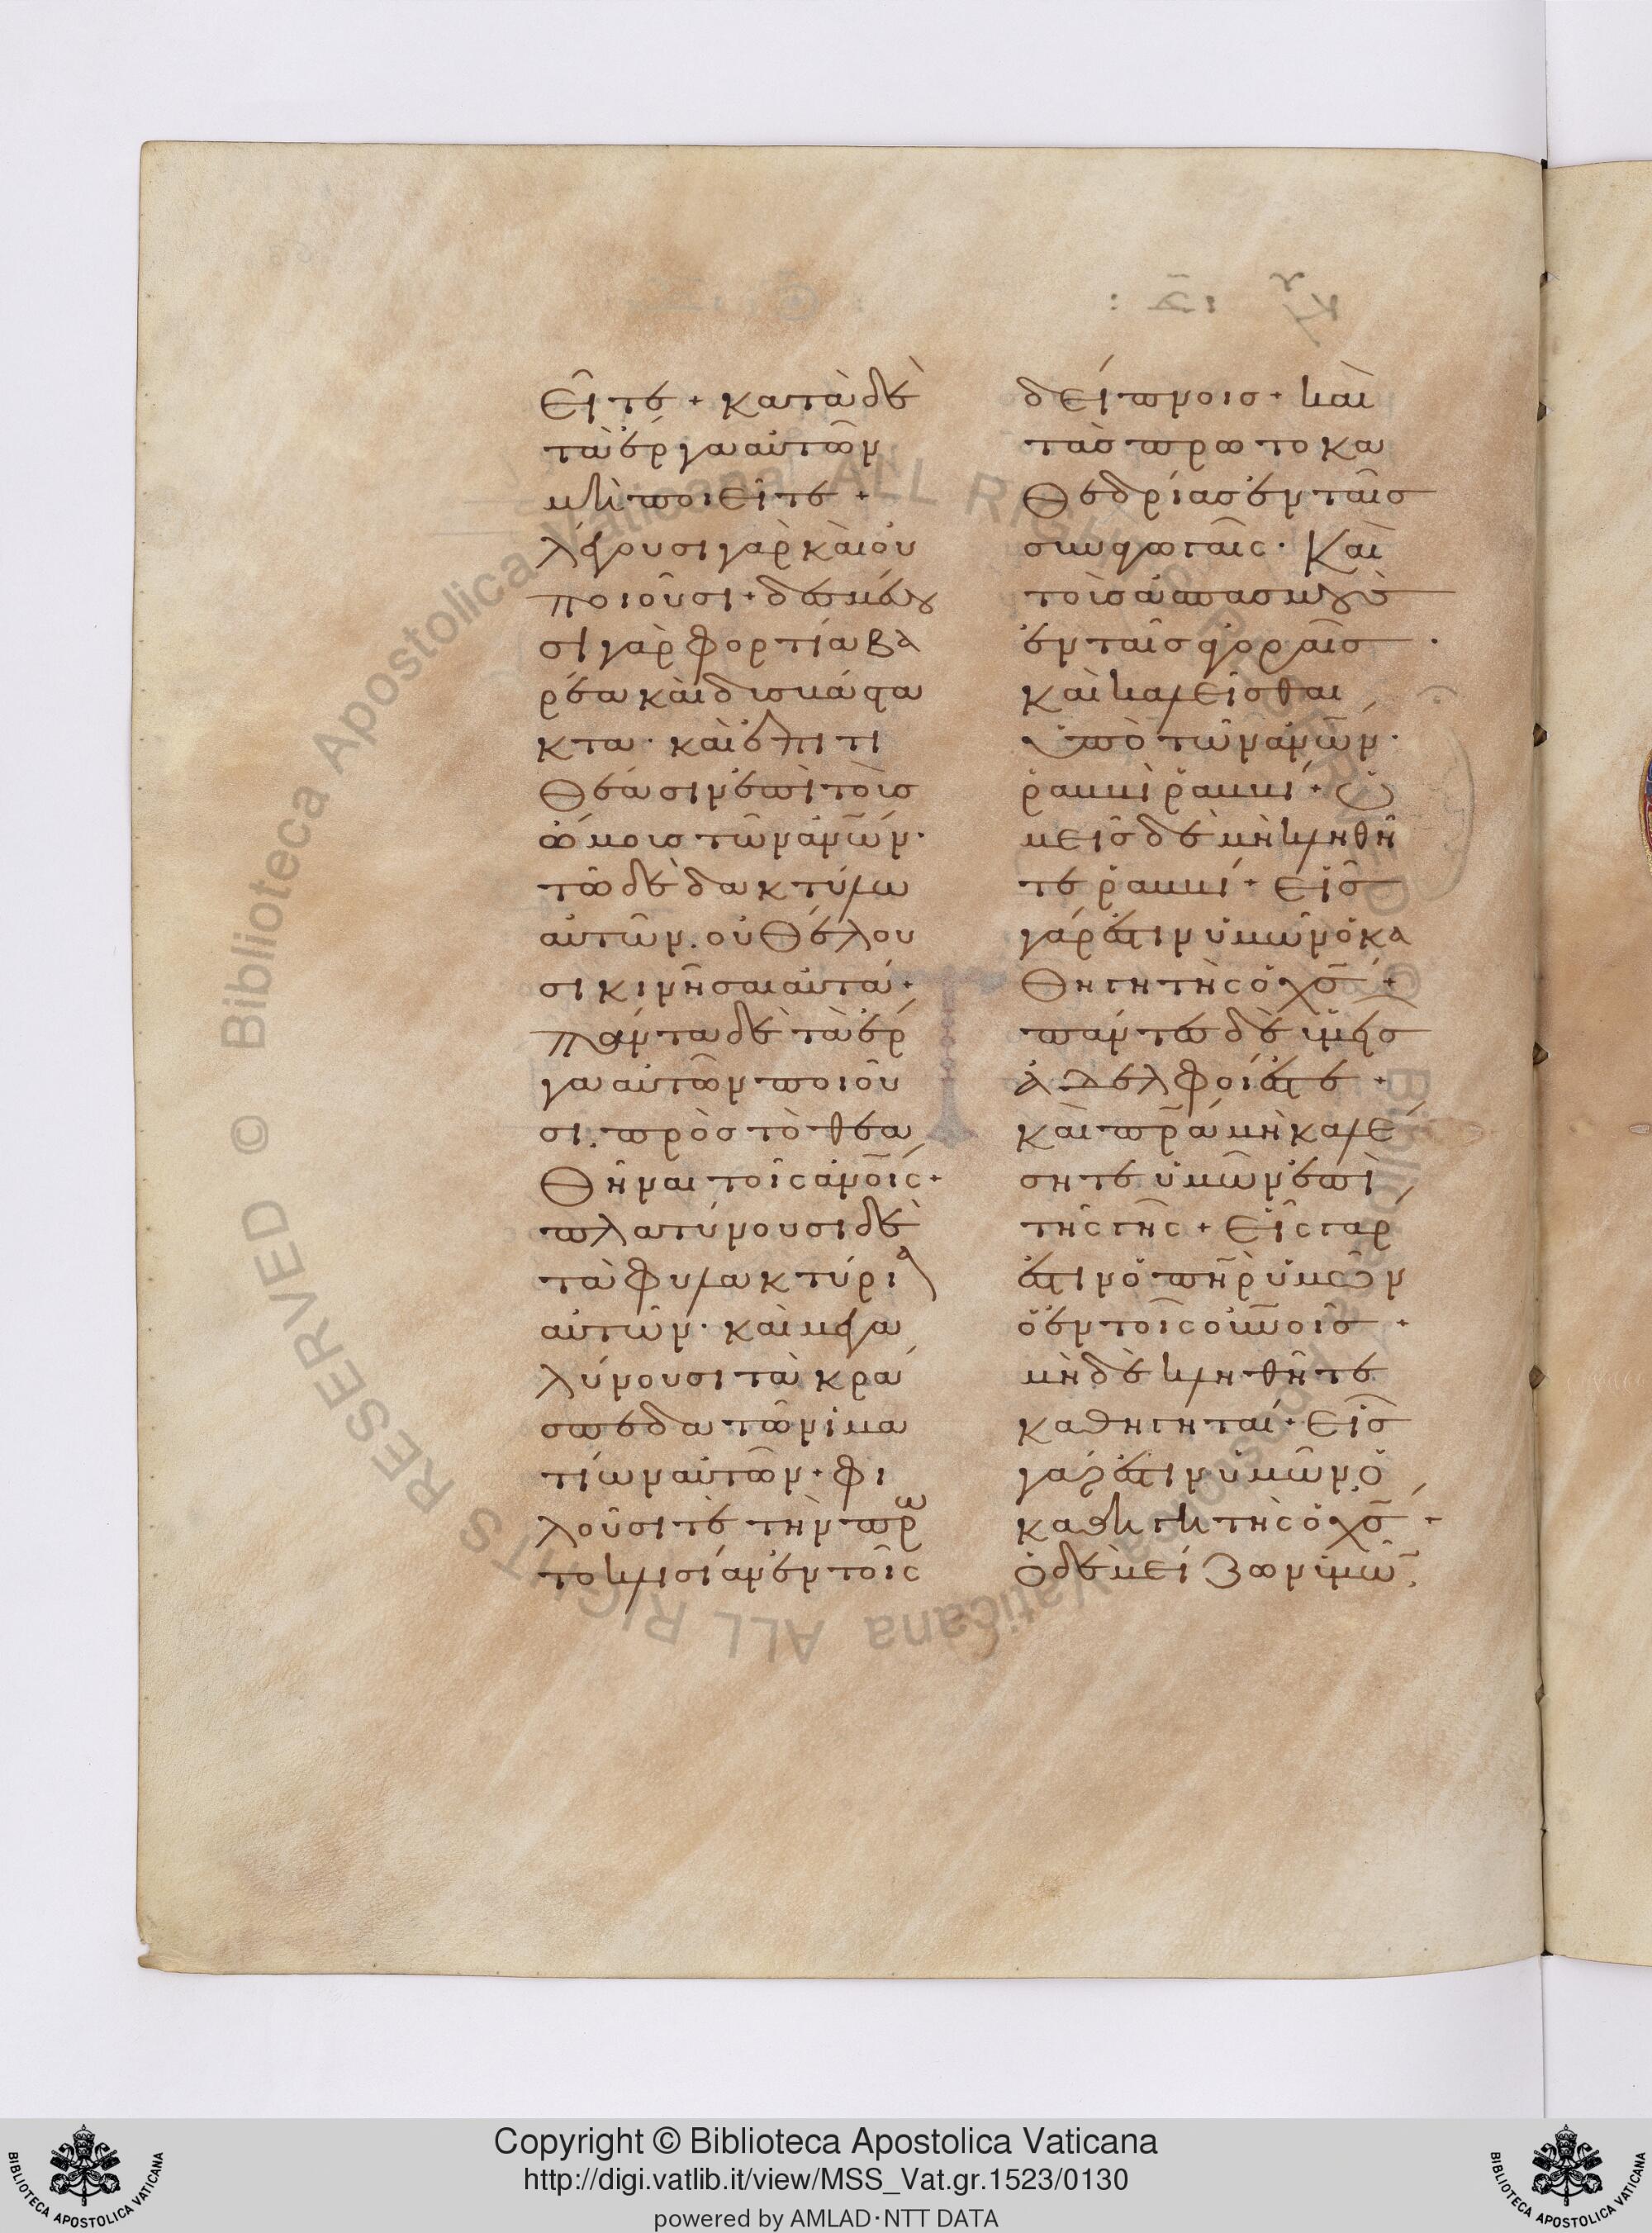 εῖτε + κατὰ δὲ
τὰ ἔργα αὐτῶν
μὴ ποιεῖτε +
λέγουσι γὰρ καὶ οὐ
ποιοῦσι + δεσμεύου
σι γὰρ φορτία βα
ρέα καὶ δυσβάστα
κτα · καὶ ἐπιτι
θέασιν ἐπὶ τοὺς
ὤμους τῶν ἀν̅ων ·
τῶ δὲ δακτύλω
αὐτῶν · οὐ θέλου
σι κινῆσαι αὐτά +
πάντα δὲ τὰ ἔρ
γα αὐτῶν ποιοῦ
σι · πρὸς τὸ θεα
θῆναι τοῖς ἀν̅οις +
πλατύνουσι δὲ
τὰ φυλακτήρια
αὐτῶν · καὶ μεγα
λύνουσι τὰ κρά
σπεδα τῶν ἱμα
τίων αὐτῶν + φι
λοῦσί τε τὴν πρω
τοκλισίαν ἐν τοῖς
δείπνοις + καὶ
τὰς πρωτοκα
θεδρίας ἐν ταῖς
συναγωγαῖς · Καὶ
τοὺς ἀσπασμοὺς
ἐν ταῖς ἀγοραῖς ·
καὶ καλεῖσθαι
ὑπὸ τῶν ἀν̅ων ·
ῥαββὶ ῥαββί + ὑ
μεῖς δὲ μὴ κληθῆ
τε ῥαββί + εἷς
γάρ ἐστιν ὑμῶν ὁ κα
θηγητὴς ὁ χ̅ς +
πάντες δὲ ὑμεῖς
ἀδελφοί ἐστε +
καὶ π̅ρα μὴ καλέ
σητε ὑμῶν ἐπὶ
τῆς γῆς + εἷς γάρ
ἐστιν ὁ π̅ηρ ὑμῶν
ὁ ἐν τοῖς οὐ̅νοις +
μὴδὲ κληθῆτε
καθηγηταί + εἷς
γάρ ἐστιν ὑμῶν ὁ
καθηγητὴς ὁ χ̅ς +
ὁ δὲ μείζων ὑμῶ̅
Copyright © Biblioteca Apostolica Vaticana
http://digi.vatlib.it/view/MSS_Vat.gr.1523/0130
powered by AMLAD·NTT DATA